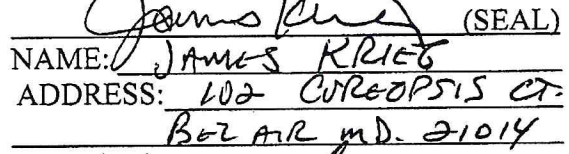 James Krieg (SEAL)
NAME: JAMES KRIEG
ADDRESS: 102 COREOPSIS CT.
BEL AIR MD. 21014